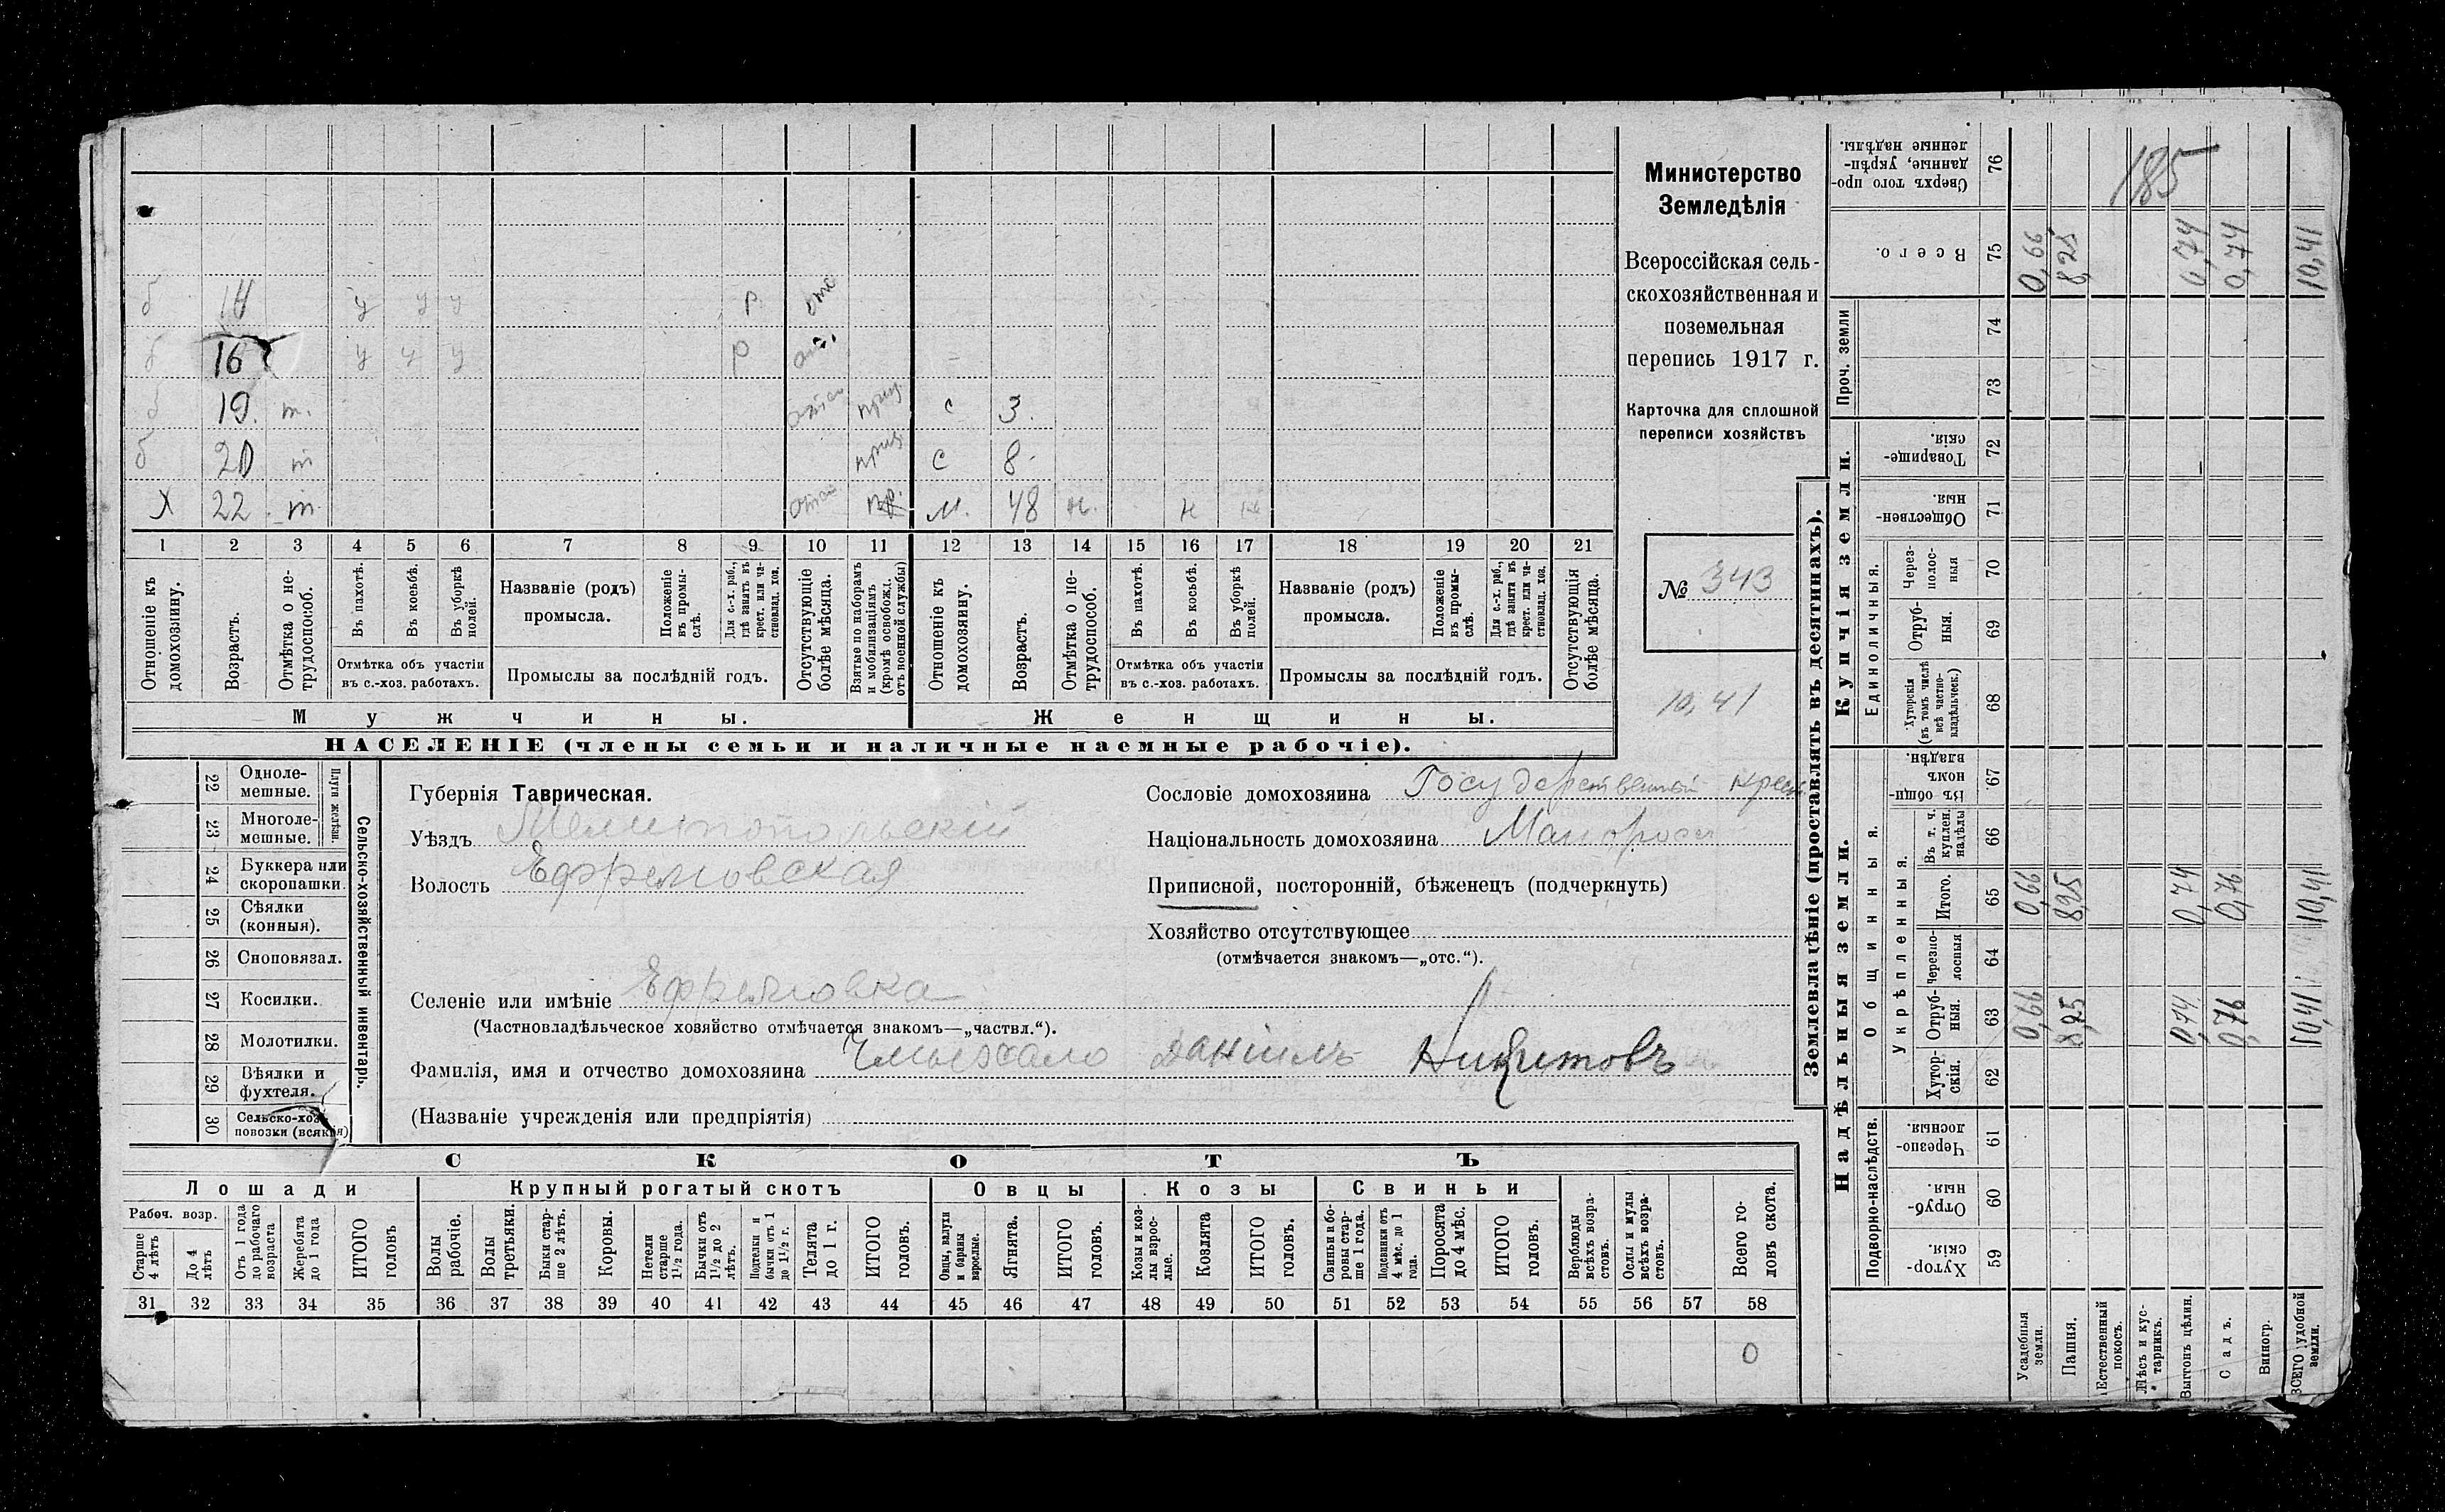 б 14 у у у р. отс
б 16 у у у р отс.
б 19. т. отс приз. с 3.
б 20 т приз с 8.
Х 22 т. отс пр. м. 48 н. н н
1 2 3 4 5 6 7 8 9 10 11 12 13 14 15 16 17 18 19 20 21
Отношеніе къ домохозяину.
Возрастъ.
Отмѣтка о нетрудоспособ.
Въ пахотѣ.
Въ косьбѣ.
Въ уборкѣ полей.
Отмѣтка объ участіи
въ с.-хоз. работахъ.
Названіе (родъ)
промысла.
Положеніе въ промыслѣ.
Для с.-х. раб., гдѣ занятъ въ крест. или частновлад. хоз.
Промыслы за послѣдній годъ.
Отсутствующіе болѣе мѣсяца.
Взятые по наборамъ и мобилизаціямъ (кромѣ освобожд. отъ военной службы)
Отношеніе къ домохозяину.
Возрастъ.
Отмѣтка о нетрудоспособ.
Въ пахотѣ.
Въ косьбѣ.
Въ уборкѣ полей.
Отмѣтка объ участіи
въ с.-хоз. работахъ.
Названіе (родъ)
промысла.
Положеніе въ промыслѣ.
Для с.-х. раб., гдѣ занята въ крест. или частновлад. хоз.
Промыслы за послѣдній годъ.
Отсутствующія болѣе мѣсяца.
Мужчины. Женщины.
НАСЕЛЕНІЕ (члены семьи и наличные наемные рабочіе).
Министерство
Земледѣлія
Всероссійская сель-
скохозяйственная и
поземельная
перепись 1917 г.
Карточка для сплошной
переписи хозяйствъ
№ 343
10,41
22 Одноле-
мешные.
23 Многоле-
мешные.
Плуги желѣзн.
24 Буккера или
скоропашки.
25 Сѣялки
(конныя).
26 Сноповязал.
27 Косилки.
28 Молотилки.
29 Вѣялки и
фухтеля.
30 Сельско-хоз.
повозки (всякія)
Сельско-хозяйственный инвентарь.
Губернія Таврическая.
Уѣздъ Мелитопольскій
Волость Ефремовская
Селеніе или имѣніе Ефремовка
(Частновладѣльческое хозяйство отмѣчается знакомъ—„частвл.“).
Фамилія, имя и отчество домохозяина Даніилъ
(Названіе учрежденія или предпріятія)
Сословіе домохозяина Государственный крест
Національность домохозяина Малоросс
Приписной, посторонній, бѣженецъ (подчеркнуть)
Хозяйство отсутствующее
(отмѣчается знакомъ—„отс.“).
СКОТЪ
Лошади Крупный рогатый скотъ Овцы Козы Свиньи
Рабоч. возр.
Старше 4 лѣтъ
До 4 лѣтъ
Отъ 1 года до рабочаго возраста
Жеребята до 1 года
ИТОГО головъ
Волы рабочіе.
Волы третьяки.
Быки старше 2 лѣтъ.
Коровы.
Нетели старше 1½ года.
Бычки отъ 1½ до 2 лѣтъ.
Подтелки и бычки отъ 1 до 1½ г.
Телята до 1 г.
ИТОГО головъ.
Овцы, валухи и бараны взрослые.
Ягнята.
ИТОГО головъ.
Козы и козлы взрослые.
Козлята
ИТОГО головъ.
Свиньи и боровы старше 1 года.
Подсвинки отъ 4 мѣс. до 1 года.
Поросята до 4 мѣс.
ИТОГО головъ.
Верблюды всѣхъ возрастовъ.
Ослы и мулы всѣхъ возрастовъ.
Всего головъ скота.
31 32 33 34 35 36 37 38 39 40 41 42 43 44 45 46 47 48 49 50 51 52 53 54 55 56 57 58
0
Землевладѣніе (проставлять въ десятинахъ).
185
Сверхъ того проданные, укрѣпленные надѣлы. 76
Всего. 75 0,66 8,25 0,74 0,74 10,41
Проч. земли
74
73
Купчія земли.
Товарищескія. 72
Общественныя. 71
Единоличныя.
Черезполосныя 70
Отрубныя. 69
Хуторскія (въ томъ числѣ всѣ частновладѣльческ.) 68
Надѣльныя земли.
Общинныя.
Въ общинномъ владѣн. 67
Укрѣпленныя.
Въ т. ч. куплен. надѣлы 66
Итого. 65 0,66 8,25 0,74 0,76 10,41
Черезполосныя 64
Отрубныя. 63 0,66 8,25 0,74 0,76 10,41
Хуторскія. 62
Подворно-наслѣдств.
Черезполосныя. 61
Отрубныя. 60
Хуторскія. 59
Усадебныя земли.
Пашня.
Естественный покосъ.
Лѣсъ и кустарникъ.
Выгонъ цѣлин.
Садъ.
Виногр.
ВСЕГО удобной земли.